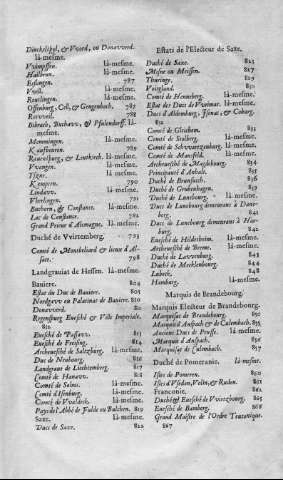 Dinckelspil, & Voerd, ou Donavvord.
là-mesme.
Vvimpffen. là-mesme.
Hailbrun. là-mesme.
Essangen. 787
Vveil. là-mesme.
Reutlingen. là-mesme.
Offenburg, Cell, & Gengenbach. 787
Rotvveil. 788
Bibrach, Buchavv, & Pfulendorff. là-
mesme.
Memmingen. là-mesme.
Kauffbeuren. 789
Ravenspurg, & Leutkirch. là-mesme.
Vvangen. là-mesme.
Isne. là-mesme.
Kempten. 790
Lindavv. là-mesme.
Vberlingen. 791
Buchorn, & Constance. là-mesme.
Lac de Constance. 792
Grand Prieur d'Alemagne. là-mesme.
Duché de Vvirtemberg. 793
Comté de Monbeliard & lieux d'Al-
sace. 798
Landgraviat de Hessen. là-mesme.
Baviere. 804
Estat du Duc de Baviere. 805
Nordgovv ou Palatinat de Baviere. 810
Donavverd.
Regensburg Evesché & Ville Imperiale.
810
Evesché de Passavv. 813
Evesché de Freising. 814
Archevesché de Salzburg. là-mesme.
Duc de Neuburg. 816
Landgrave de Liechtenberg. 817
Comté de Hanavv. 818
Comté de Solms. là-mesme.
Comté d'Isenburg. là-mesme.
Comté de Vvaldeck. là-mesme.
Pays de l'Abbé de Fulde ou Buchen. 819
Saxe. là-mesme.
Ducs de Saxe. 822
Estats de l'Electeur de Saxe.
Duché de Saxe. 825
Misne ou Meissen. 827
Thuringe. 827
Voigtland. 830
Comté de Henneberg. là-mesme.
Estat des Ducs de Vveimar. là-mesme.
Ducs d'Aldemburg, Isenac, & Coburg.
832
Comté de Gleichen. 833
Comté de Stolberg. là-mesme.
Comté de Schvvartzenburg. là-mesme.
Comté de Mansfeld. là-mesme.
Archevesché de Magdeburg. 834
Principauté d'Anhalt. 835
Duché de Brunsvich. 836
Duché de Grubenhagen. 839
Duché de Lunebourg. là-mesme.
Ducs de Lunebourg demeurans à Danne-
berg. 841
Ducs de Lunebourg demeurans à Har-
burg. 842
Evesché de Hildesheim. là-mesme.
Archevesché de Breme. là-mesme.
Duché de Lavvenburg. 843
Duché de Mecklebourg. 844
Lubeck. 848
Hamburg. là-mesme.
Marquis de Brandebourg.
Marquis Electeur de Brandebourg.
Marquisat de Brandebourg. 850
Marquis d'Anspach & de Culembach. 853
Anciens Ducs de Prusse. là-mesme.
Marquis d'Anspach. 856
Marquisat de Culembach. 857
Duché de Pomeranie. là-mesme.
Isles de Pomeren. 860
Isles d'Vsedam, Volin, & Ruden. 861
Franconie. 862
Duché & Evesché de Vvirtzbourg. 865
Evesché de Bamberg. 868
Grand Maistre de l'Ordre Teutonique.
867